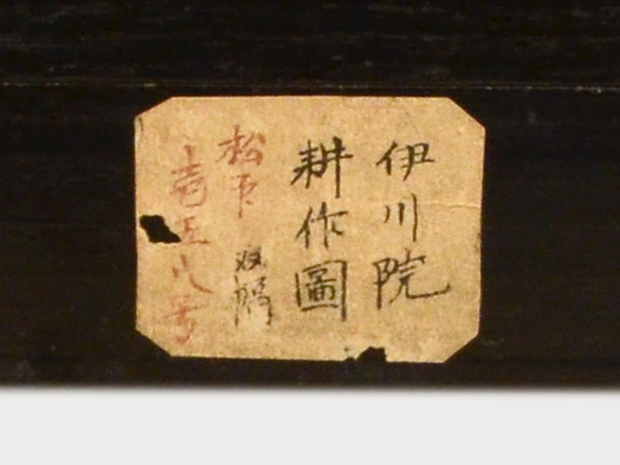 伊川院
耕作圖
双幅
松下
壱五八号